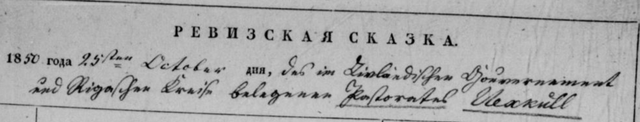 РЕВИЗСКАЯ СКАЗКА.
1850 года 25sten October дня, des im Livländischen Gouvernement
und Rigaschen Kreise belegenen Pastorates Uexküll